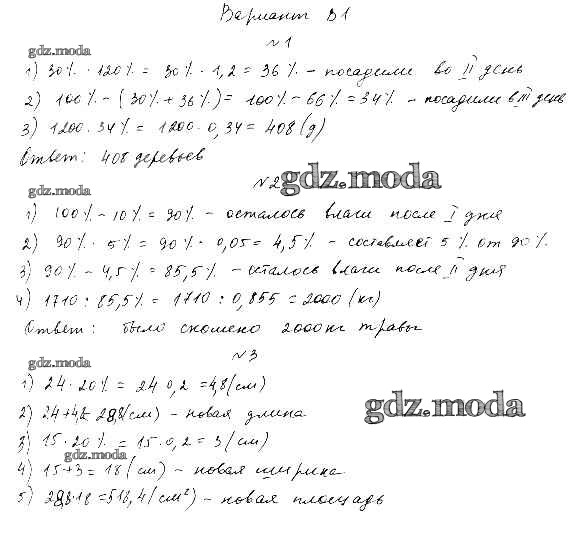 Вариант В1
№1
gdz.moda
1) 30% · 120% = 30% · 1,2 = 36% - посадили во II день
2) 100% - (30% + 36%) = 100% - 66% = 34% - посадили в III день
3) 1200 · 34% = 1200 · 0,34 = 408 (д)
Ответ: 408 деревьев
№2 gdz.moda
gdz.moda
1) 100% - 10% = 90% - осталось влаги после I дня
2) 90% · 5% = 90% · 0,05 = 4,5% - составляет 5% от 90%
3) 90% - 4,5% = 85,5% - осталось влаги после II дня
4) 1710 : 85,5% = 1710 : 0,855 = 2000 (кг)
Ответ: было скошено 2000 кг травы
№3
gdz.moda
1) 24 · 20% = 24 · 0,2 = 4,8 (см)
gdz.moda
2) 24 + 4,8 = 28,8 (см) - новая длина
3) 15 · 20% = 15 · 0,2 = 3 (см)
gdz.moda
4) 15 + 3 = 18 (см) - новая ширина
5) 28,8 · 18 = 518,4 (см²) - новая площадь